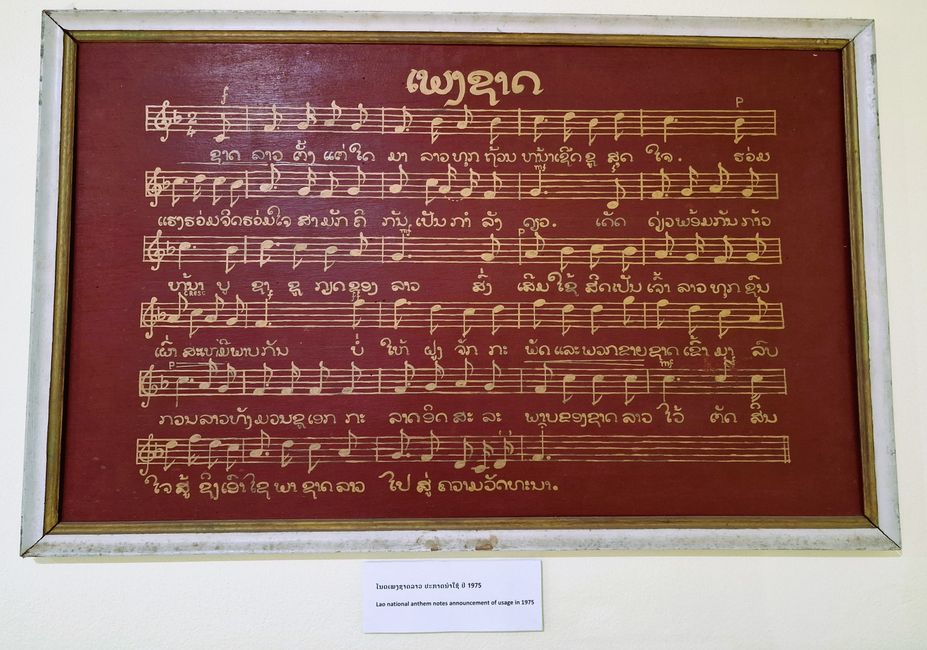 ເພງຊາດ
f
2
4
p
ຊາດ ລາວ ຕັ້ງ ແຕ່ໃດ ມາ ລາວທຸກ ຖ້ວນ ໜ້າເຊີດຊູ ສຸດ ໃຈ. ຮ່ວມ
ແຮງຮ່ວມຈິດຮ່ວມໃຈ ສາມັກ ຄີ ກັນ ເປັນ ກຳ ລັງ ດຽວ. ເດັດ ດ່ຽວພ້ອມກັນ ກ້າວ
ໜ້າ ບູ ຊາ ຊູ ກຽດ ຂອງ ລາວ ສົ່ງ ເສີມ ໃຊ້ ສິດເປັນ ເຈົ້າ ລາວ ທຸກ ຊົນ
CRESC
ເຜົ່າ ສະເໝີພາບກັນ ບໍ່ ໃຫ້ ຝູງ ຈັກ ກະ ພັດ ແລະພວກຂາຍ ຊາດ ເຂົ້າ ມາ ລົບ
p
mf
ກວນ ລາວທັງ ມວນຊູເອກ ກະ ລາດ ອິດ ສະ ລະ ພາບຂອງຊາດ ລາວ ໄວ້ ຕັດ ສິນ
ໃຈ ສູ້ ຊິງເອົາໄຊ ພາ ຊາດ ລາວ ໄປ ສູ່ ຄວາມ ວັດທະນາ.
ໂນດເພງຊາດລາວ ປະກາດນຳໃຊ້ ປີ 1975
Lao national anthem notes announcement of usage in 1975